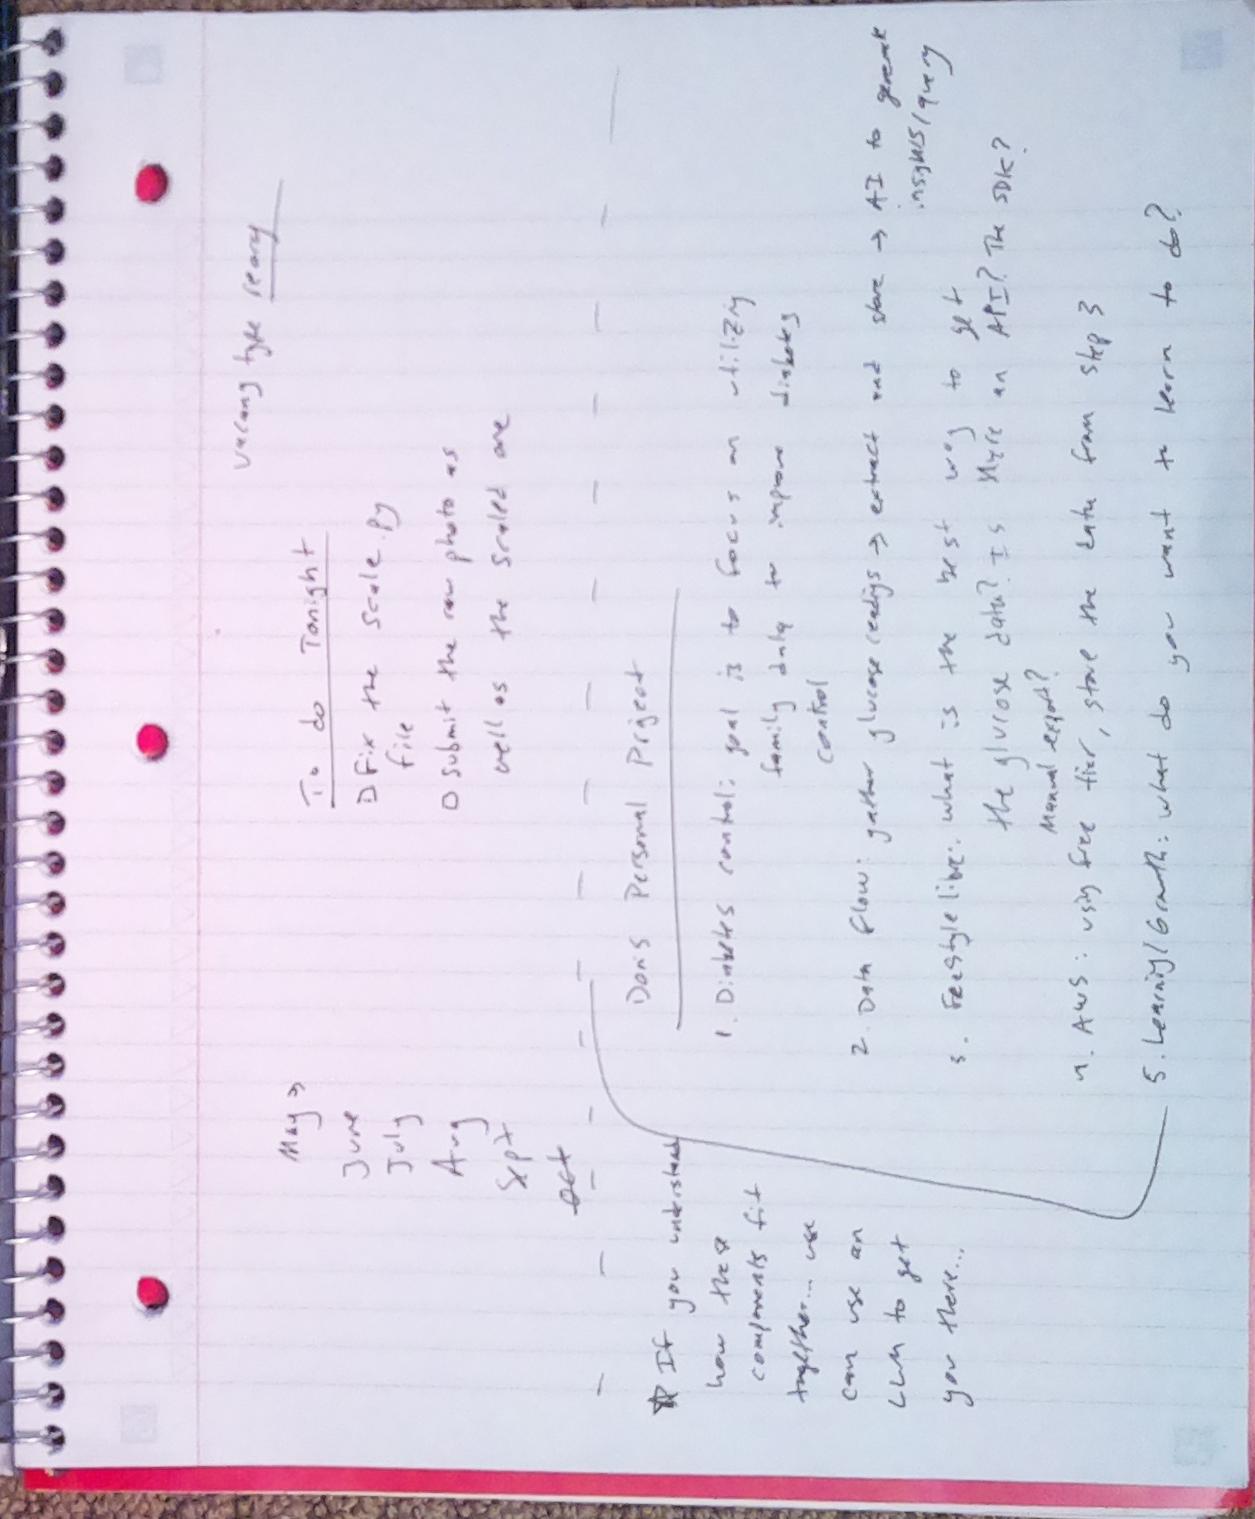 vacancy type
May →
June
July
Aug
Sept
Oct
To do Tonight
Fix the scale.py
file
Submit the raw photo as
well as the scaled one
Don's Personal Project
1. Diabetes control: goal is to focus on utilizing
family data to improve diabetes
control
2. Data flow: gather glucose readings → extract and store → AI to generate
insights/query
3. Freestyle libre: what is the best way to get
the glucose data? Is there an API? The SDK?
Manual export?
4. AWS: using free tier, store the data from step 3
5. Learning/Growth: what do you want to learn to do?
☆ If you understand
how these
components fit
together... we
can use an
LLM to get
you there...